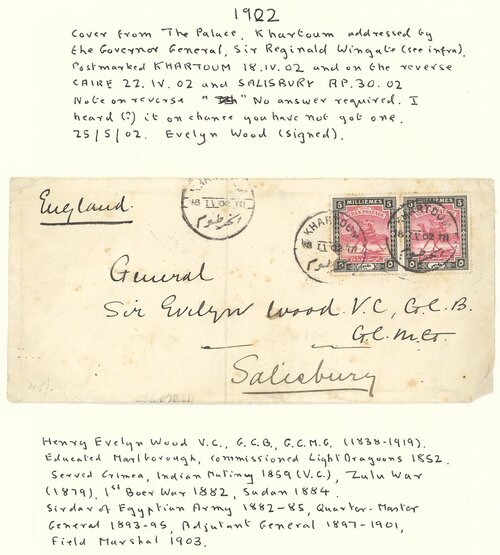 1902
Cover from The Palace, Khartoum addressed by
the Governor General, Sir Reginald Wingate (see infra).
Postmarked KHARTOUM 18.IV.02 and on the reverse
CAIRE 22.IV.02 and SALISBURY AP.30.02
Note on reverse " " No answer required. I
heard (?) it on chance you have not got one.
25/5/02. Evelyn Wood (signed).
England
KHARTOUM
الخرطوم
5 MILLIEMES 5
5 MILLIEMES 5
KHARTOUM
الخرطوم
KHARTOUM
General
Sir Evelyn Wood. V.C, G.C.B.
G.C.M.G.
Salisbury
45/-
Henry Evelyn Wood V.C., G.C.B, G.C.M.G. (1838-1919).
Educated Marlborough, commissioned Light Dragoons 1852.
Served Crimea, Indian Mutiny 1859 (V.C.), Zulu War
(1879), 1st Boer War 1882, Sudan 1884.
Sirdar of Egyptian Army 1882-85, Quarter-Master
General 1893-95, Adjutant General 1897-1901,
Field Marshal 1903.